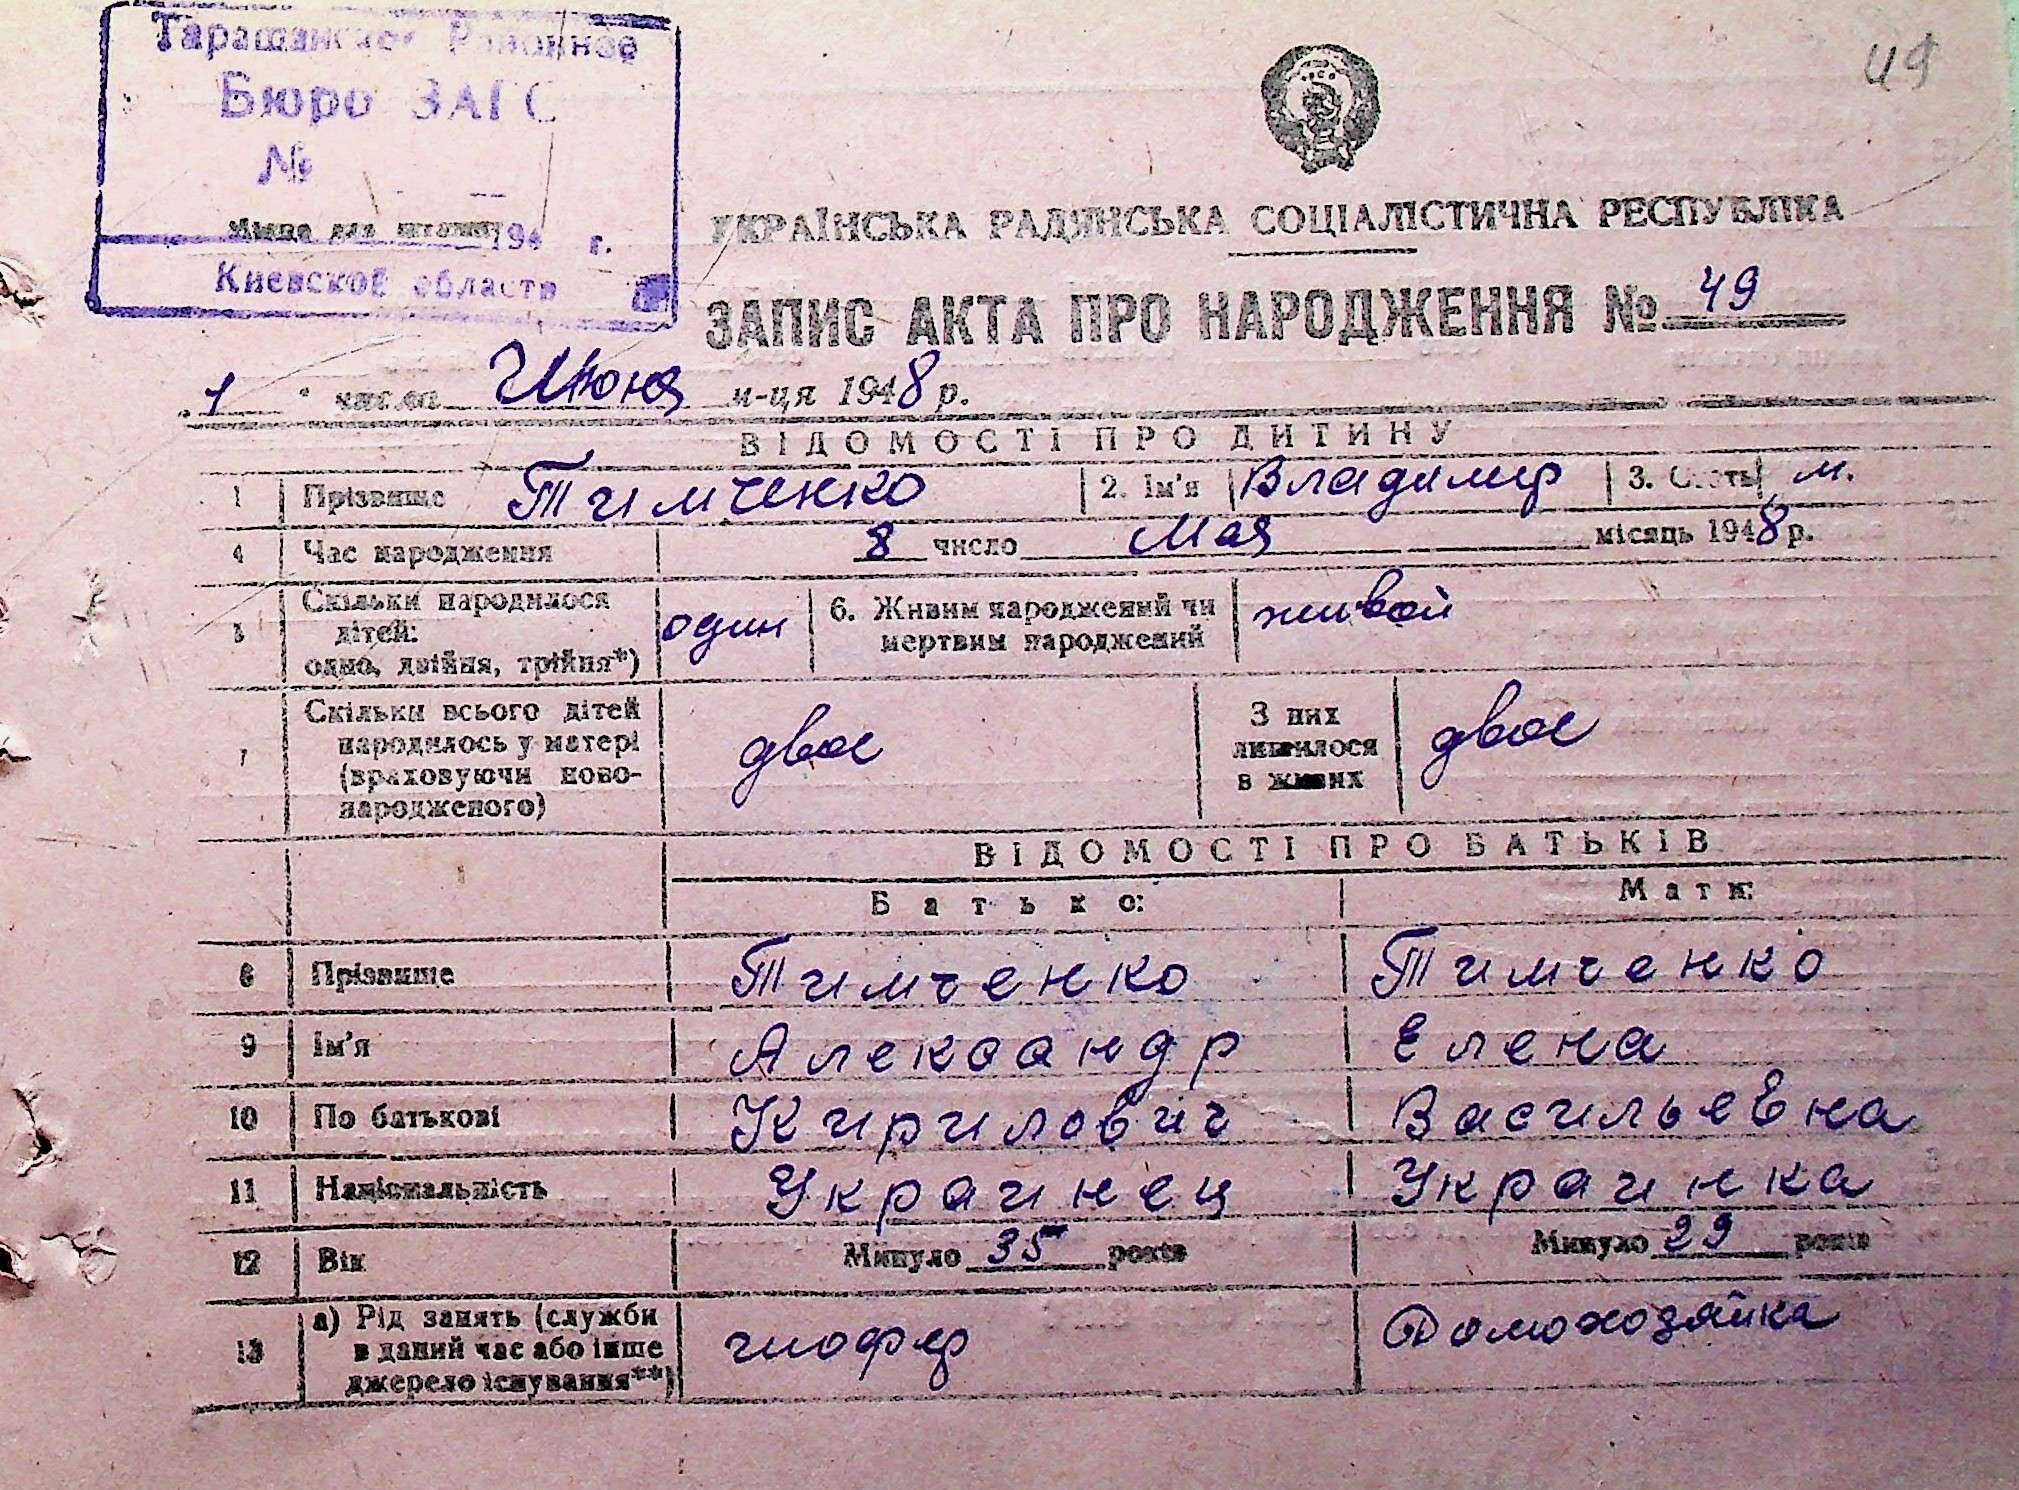 49
Таращанское Районное
Бюро ЗАГС
№
Місце для штампу 194 г.
Киевской области
УКРАЇНСЬКА РАДЯНСЬКА СОЦІАЛІСТИЧНА РЕСПУБЛІКА
ЗАПИС АКТА ПРО НАРОДЖЕННЯ № 49
„1 " числа Июня м-ця 1948 р.
ВІДОМОСТІ ПРО ДИТИНУ
1 Прізвище Тимченко 2. Ім'я Владимир 3. Стать м.
4 Час народження 8 число Мая місяць 1948 р.
5 Скільки народилося дітей: одно, двійня, трійня*) один 6. Живим народжений чи мертвим народжений живой
7 Скільки всього дітей народилось у матері (враховуючи ново-народженого) двое З них лишилося в живих двое
ВІДОМОСТІ ПРО БАТЬКІВ
Батько: Мати:
8 Прізвище Тимченко Тимченко
9 Ім'я Александр Елена
10 По батькові Кирилович Васильевна
11 Національність Украинец Украинка
12 Вік Минуло 35 років Минуло 29 років
13 а) Рід занять (служби в даний час або інше джерело існування**) шофер Домохозяйка